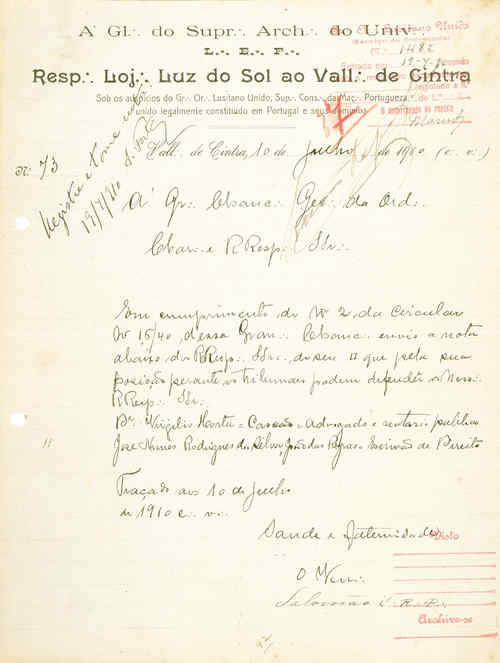 A∴ Gl∴ do Supr∴ Arch∴ do Univ∴
L∴ E∴ F∴
Resp∴ Loj∴ Luz do Sol ao Vall∴ de Cintra
Sob os auspicios do Gr∴ Or∴ Lusitano Unido, Sup∴ Cons∴ da Maç∴ Portugueza
unido legalmente constituido em Portugal e seus dominios
Unido
Nº 1482
Entrada em 19-7-10
Nº 73
Registe e Nome
19/7/910
Vall∴ de Cintra, 10 de Junho de 1910 (e∴ v∴)
A' Gr∴ Chanc∴ Ger∴ da Ord∴
Char∴ e RResp∴ IIr∴
Em cumprimento do Nº 2 da Circular
Nº 15/40 dessa Gran∴ Chanc∴ envio a nota
abaixo dos RResp∴ IIr∴ do seu que pela sua
posição perante os tribunaes podem defender os Nossos
RResp∴ IIr∴
Dr. Virgilio Horta = Cascaes = Advogado e notario publico
José Nunes Rodrigues da Silva, João das = Escrivães de Direito
Traçado aos 10 de Junho
de 1910 e∴ v∴
Saude e Fraternidade
Visto
O Ven∴
Salomão
Archive-se